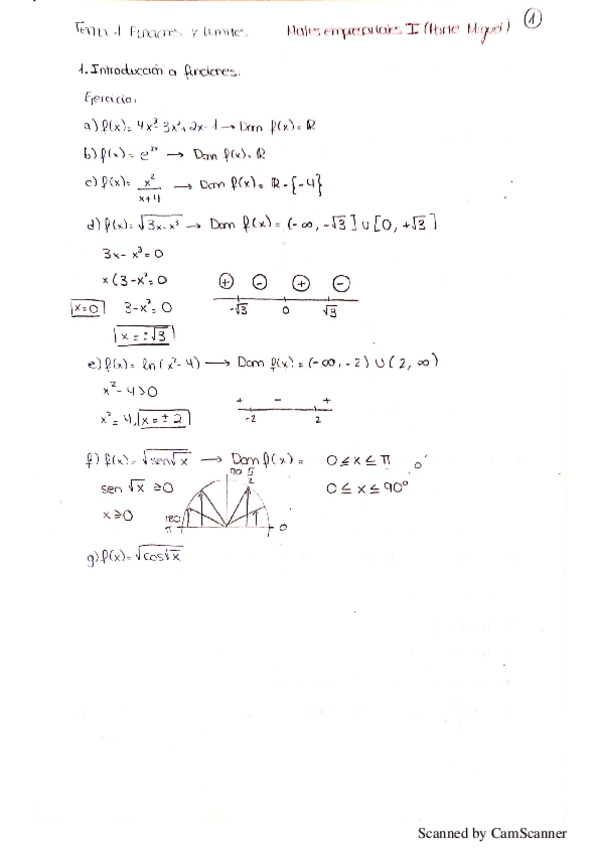 Tema 1 Funciones y límites. Mates empresariales I (Parte Miguel) 1
1. Introducción a funciones.
Ejercicio:
a) f(x)= 4x³-3x²+2x-1 → Dom f(x)= ℝ
b) f(x)= e²ˣ → Dom f(x)= ℝ
c) f(x)= x²/(x+4) → Dom f(x)= ℝ-{-4}
d) f(x)= √(3x-x³) → Dom f(x)= (-∞, -√3] ∪ [0, +√3]
3x-x³=0
x(3-x²=0 + - + -
x=0 3-x²=0 -√3 0 √3
x=±√3
e) f(x)= ln(x²-4) → Dom f(x)= (-∞, -2) ∪ (2, ∞)
x²-4>0 + - +
x²=4, x=±2 -2 2
f) f(x)= √(sen√x) → Dom f(x)= 0≤x≤π
sen √x ≥0 90 π/2 0≤x≤90°
x≥0 180 π 0
g) f(x)= √(cos√x)
Scanned by CamScanner